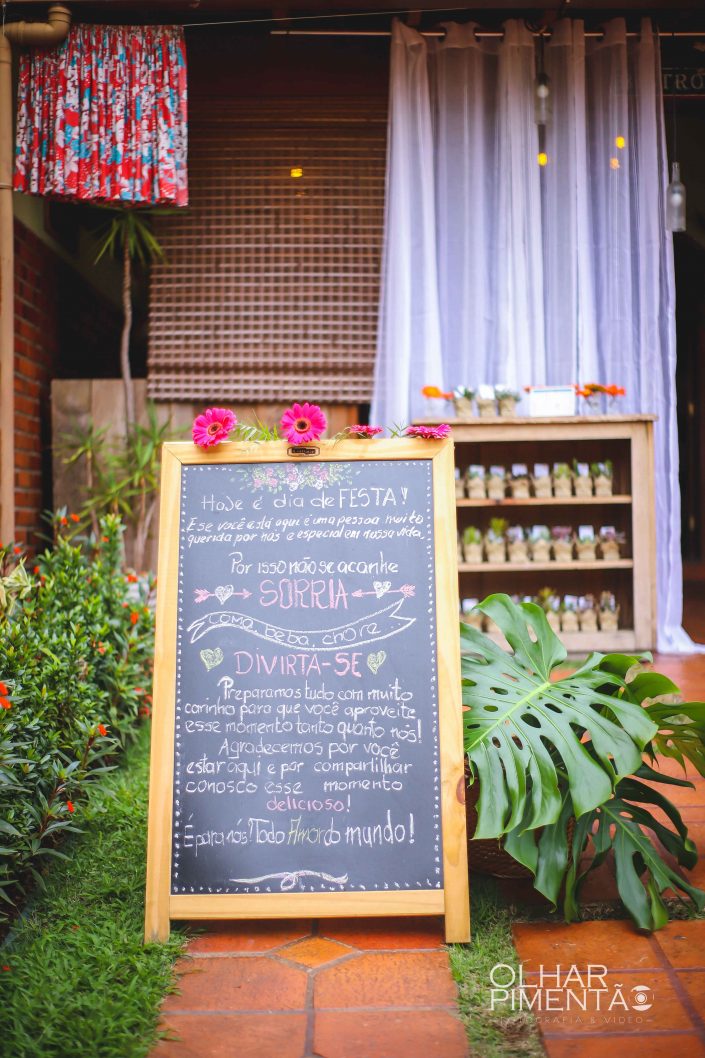 TRÔ
Hoje é dia de FESTA!
E se você está aqui é uma pessoa muito
querida por nós e especial em nossa vida.
Por isso não se acanhe
SORRIA
COMA, BEBA, CHORE
DIVIRTA-SE
Preparamos tudo com muito
carinho para que você aproveite
esse momento tanto quanto nós!
Agradecemos por você
estar aqui e por compartilhar
conosco esse momento
delicioso!
É para nós! Todo Amor do mundo!
OLHAR
PIMENTÃO
FOTOGRAFIA & VIDEO